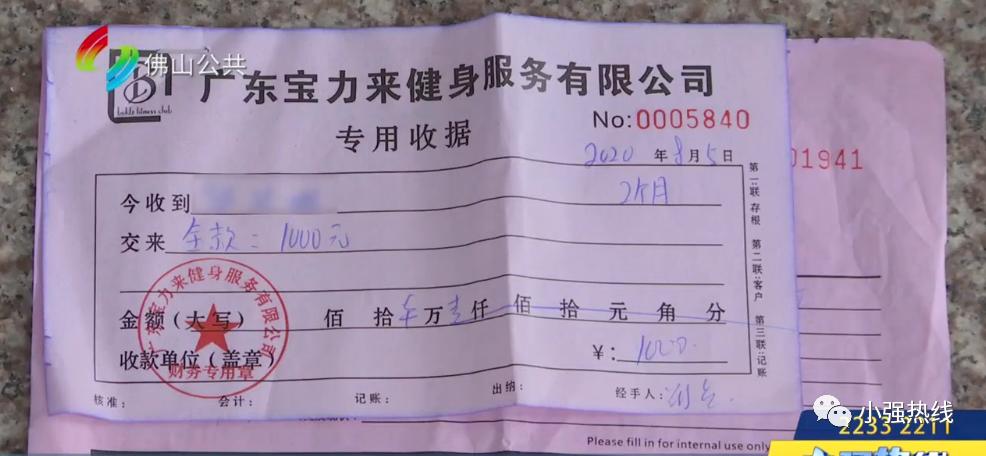 佛山公共
广东宝力来健身服务有限公司
No:0005840
专用收据
2020年8月5日
01941
今收到
2个月
交来 全款:1000元
金额(大写) 佰拾 万壹仟佰拾元角分
收款单位(盖章)
¥:1000.
广东宝力来健身服务有限公司
财务专用章
核准:
会计:
记账:
出纳:
经手人:
第一联:存根 第二联:客户 第三联:记账
Please fill in for internal use only
小强热线
2233 2211